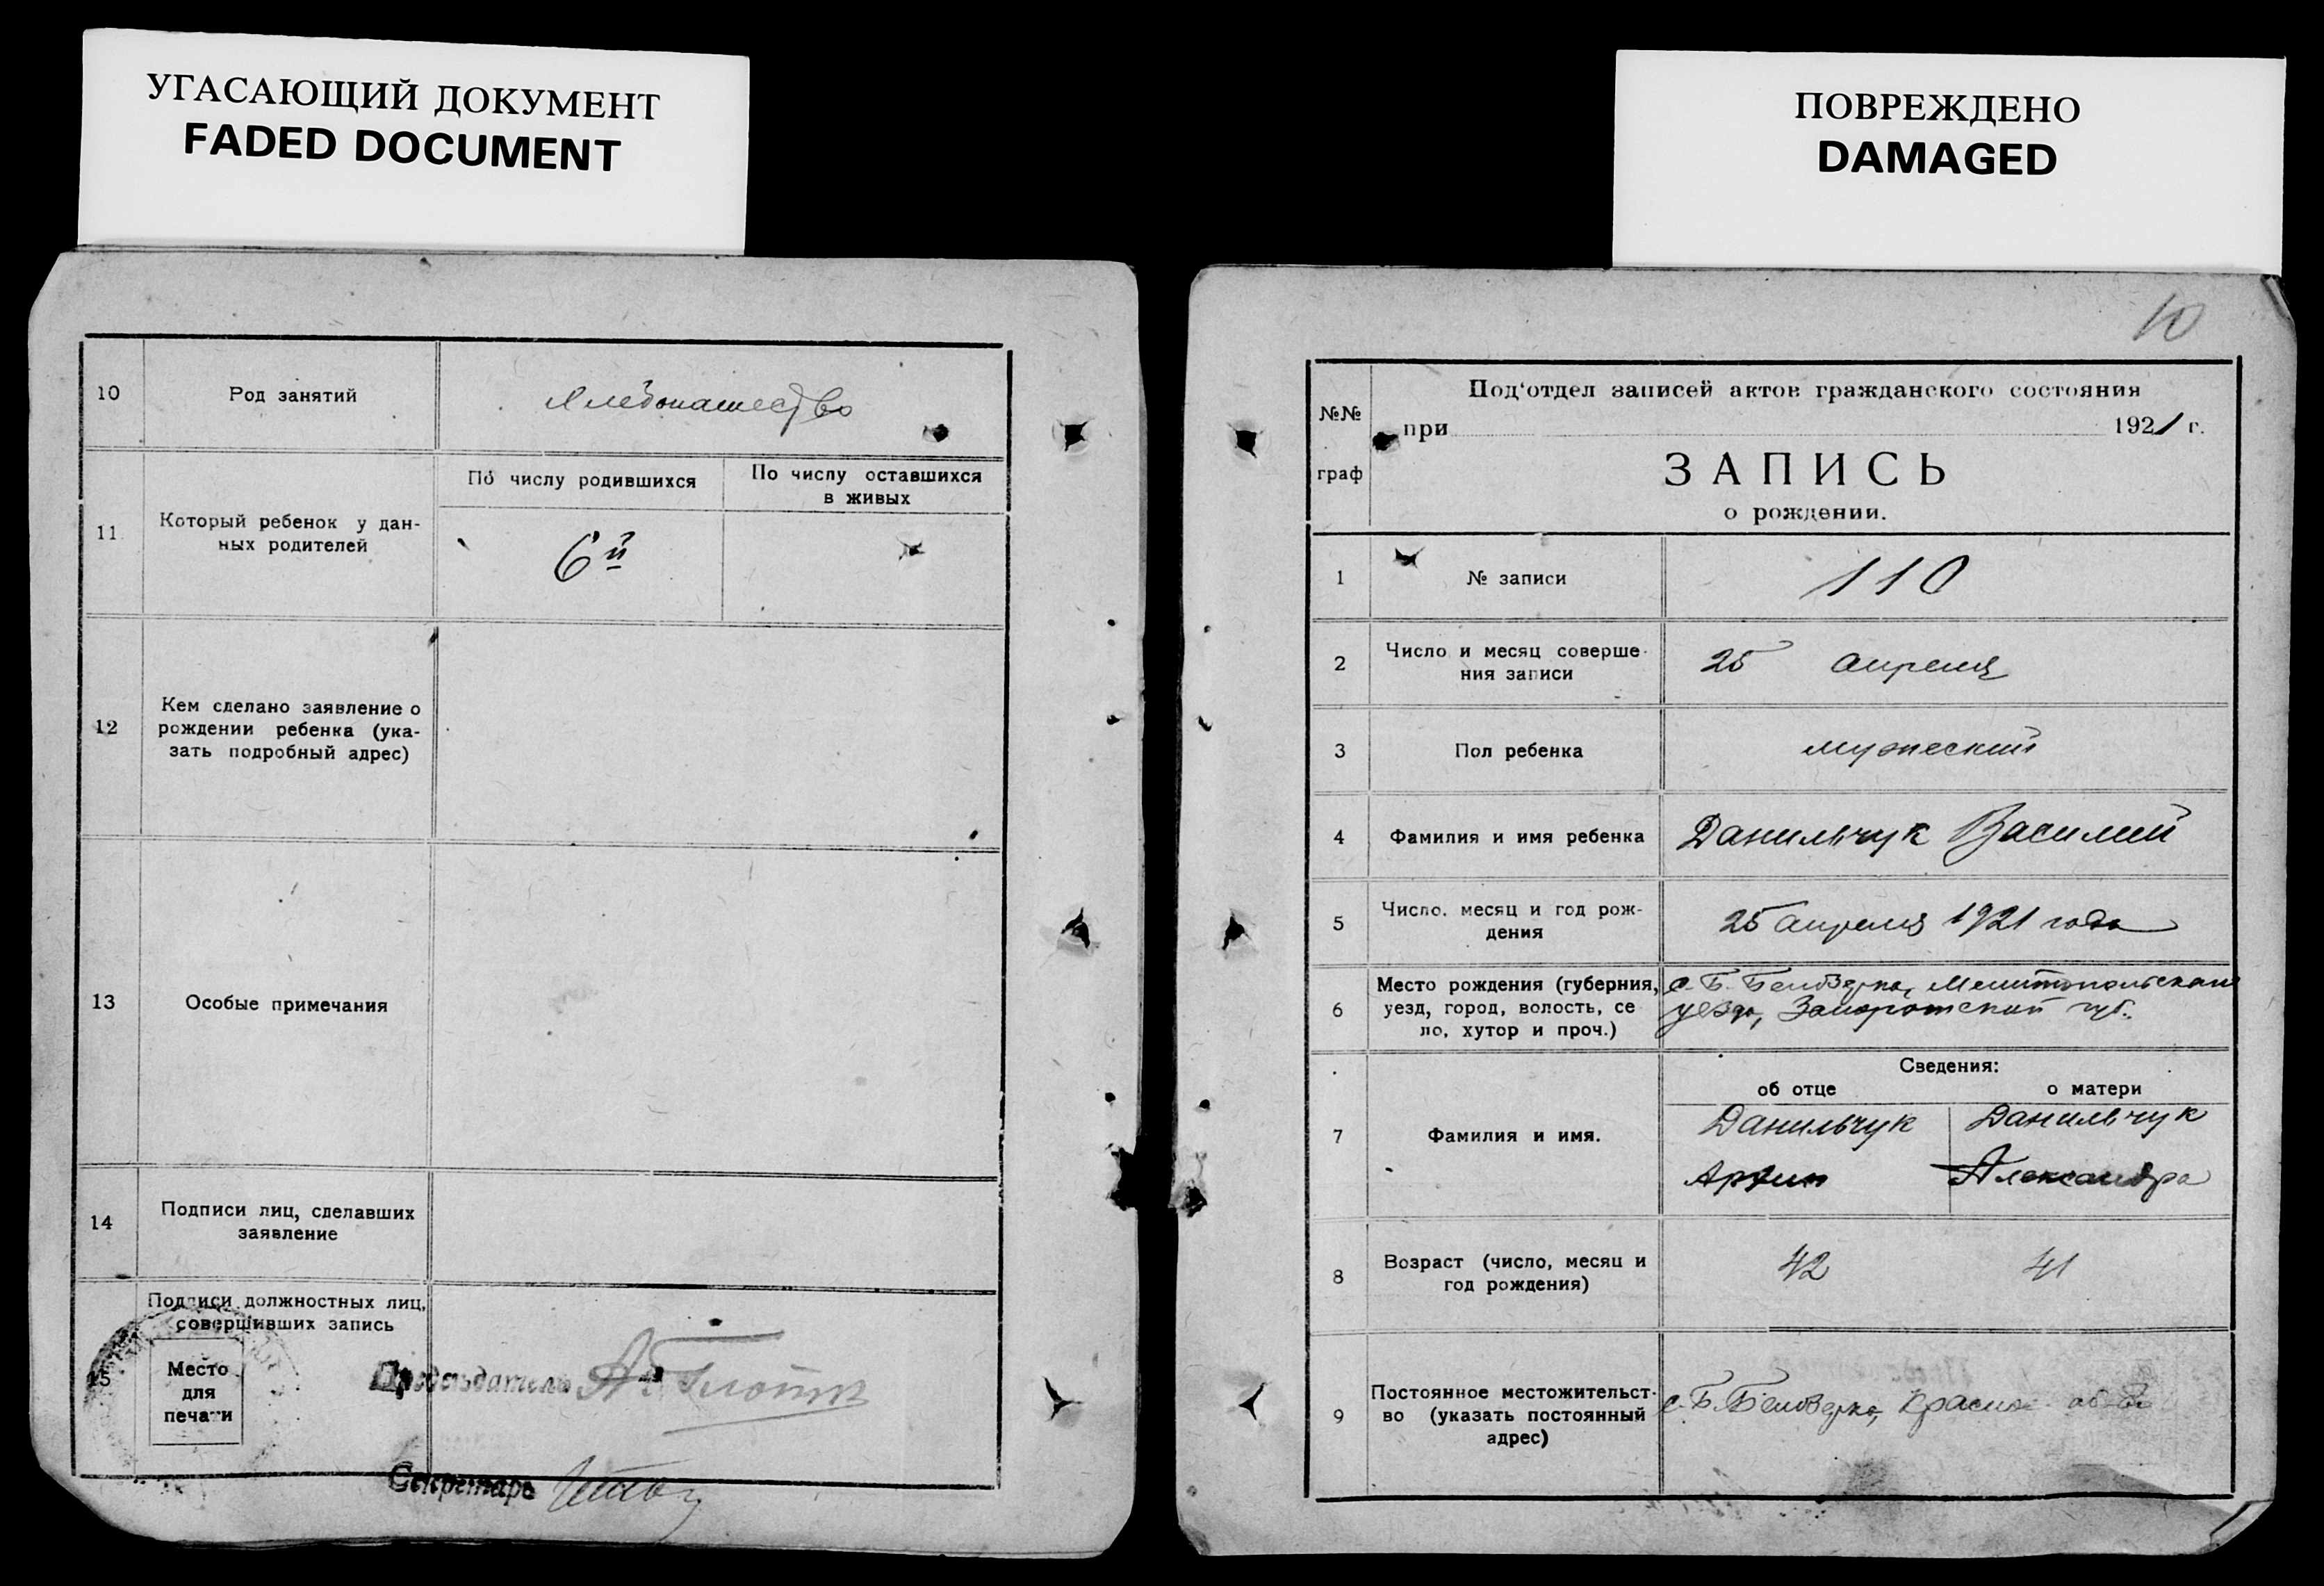 УГАСАЮЩИЙ ДОКУМЕНТ
FADED DOCUMENT
10
Род занятий
Хлебопашество
11
Который ребенок у дан-
ных родителей
По числу родившихся
6й
По числу оставшихся
в живых
12
Кем сделано заявление о
рождении ребенка (ука-
зать подробный адрес)
13
Особые примечания
14
Подписи лиц, сделавших
заявление
15
Подписи должностных лиц,
совершивших запись
Место
для
печати
Председатель
Секретарь
ПОВРЕЖДЕНО
DAMAGED
10
№№
граф
Под'отдел записей актов гражданского состояния
при 1921 г.
ЗАПИСЬ
о рождении.
1
№ записи
110
2
Число и месяц соверше-
ния записи
25 апреля
3
Пол ребенка
мужеский
4
Фамилия и имя ребенка
Данильчук Василий
5
Число. месяц и год рож-
дения
25 апреля 1921 года
6
Место рождения (губерния,
уезд, город, волость, се
ло, хутор и проч.)
с. Б. Белозерка, Мелитопольскаго
уезда, Запорожской губ.
Сведения:
об отце
о матери
7
Фамилия и имя.
Данильчук
Данильчук
Александра
8
Возраст (число, месяц и
год рождения)
42
41
9
Постоянное местожительст-
во (указать постоянный
адрес)
с. Б. Белозерка,